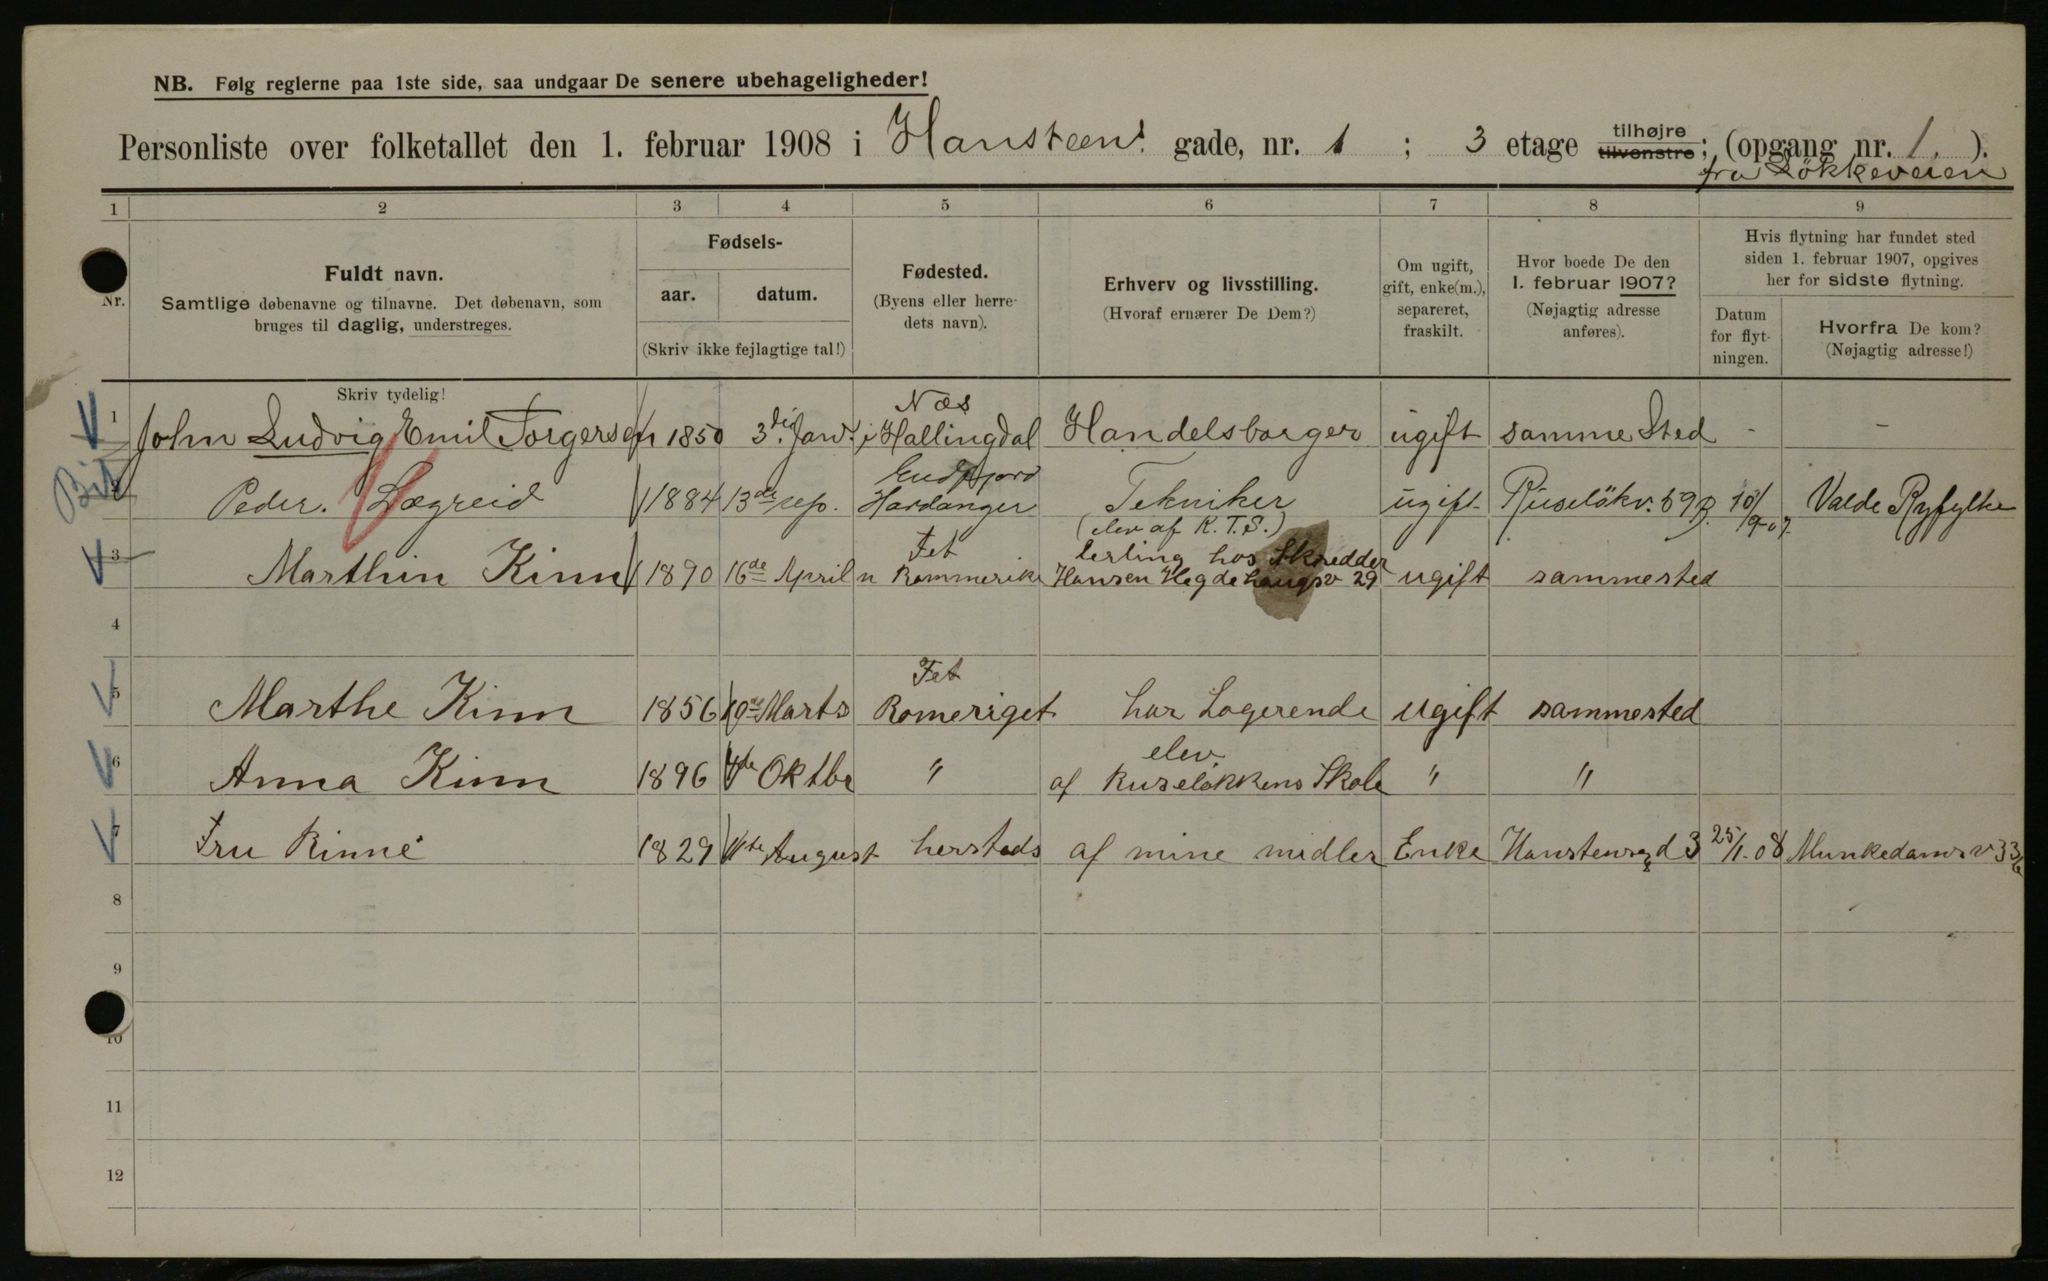 NB. Følg reglerne paa 1ste side, saa undgaar De senere ubehageligheder!
Personliste over folketallet den 1. februar 1908 i Hansteens gade, nr. 1 ; 3 etage tilhøjre tilvenstre; (opgang nr. 1. ).
fra Løkkeveien
1 2 3 4 5 6 7 8 9
Nr.
Fuldt navn.
Samtlige døbenavne og tilnavne. Det døbenavn, som
bruges til daglig, understreges.
Fødsels-
aar. datum.
(Skriv ikke fejlagtige tal!)
Fødested.
(Byens eller herre-
dets navn).
Erhverv og livsstilling.
(Hvoraf ernærer De Dem?)
Om ugift,
gift, enke(m.),
separeret,
fraskilt.
Hvor boede De den
1. februar 1907?
(Nøjagtig adresse
anføres).
Hvis flytning har fundet sted
siden 1. februar 1907, opgives
her for sidste flytning.
Datum
for flyt-
ningen.
Hvorfra De kom?
(Nøjagtig adresse!)
Skriv tydelig!
Næs
1 John Ludvig Emil Torgersen 1850 3die Jan. i Hallingdal Handelsborger ugift samme Sted - -
Eidfjord
2 Peder. Lægreid 1884 13de sep. Hardanger Tekniker ugift Ruseløkv. 59 B. 10/9-07. Valde Ryfylke
(elev af K. T. S.)
Fet lerling hos Skredder
3 Marthin Kinn 1890 16de April n Rommerike Hansen Hegdehaugsv 29 ugift sammested
4
Fet
5 Marthe Kinn 1856 19de Marts Romeriget har Logerende ugift sammested
elev
6 Anna Kinn 1896 4de Oktbr " af Ruseløkkens Skole " "
7 Fru Rinné 1829 11te August hersteds af mine midler Enke Hanstensgd 3 25/1-08 Munkedamsv 33
8
9
10
11
12